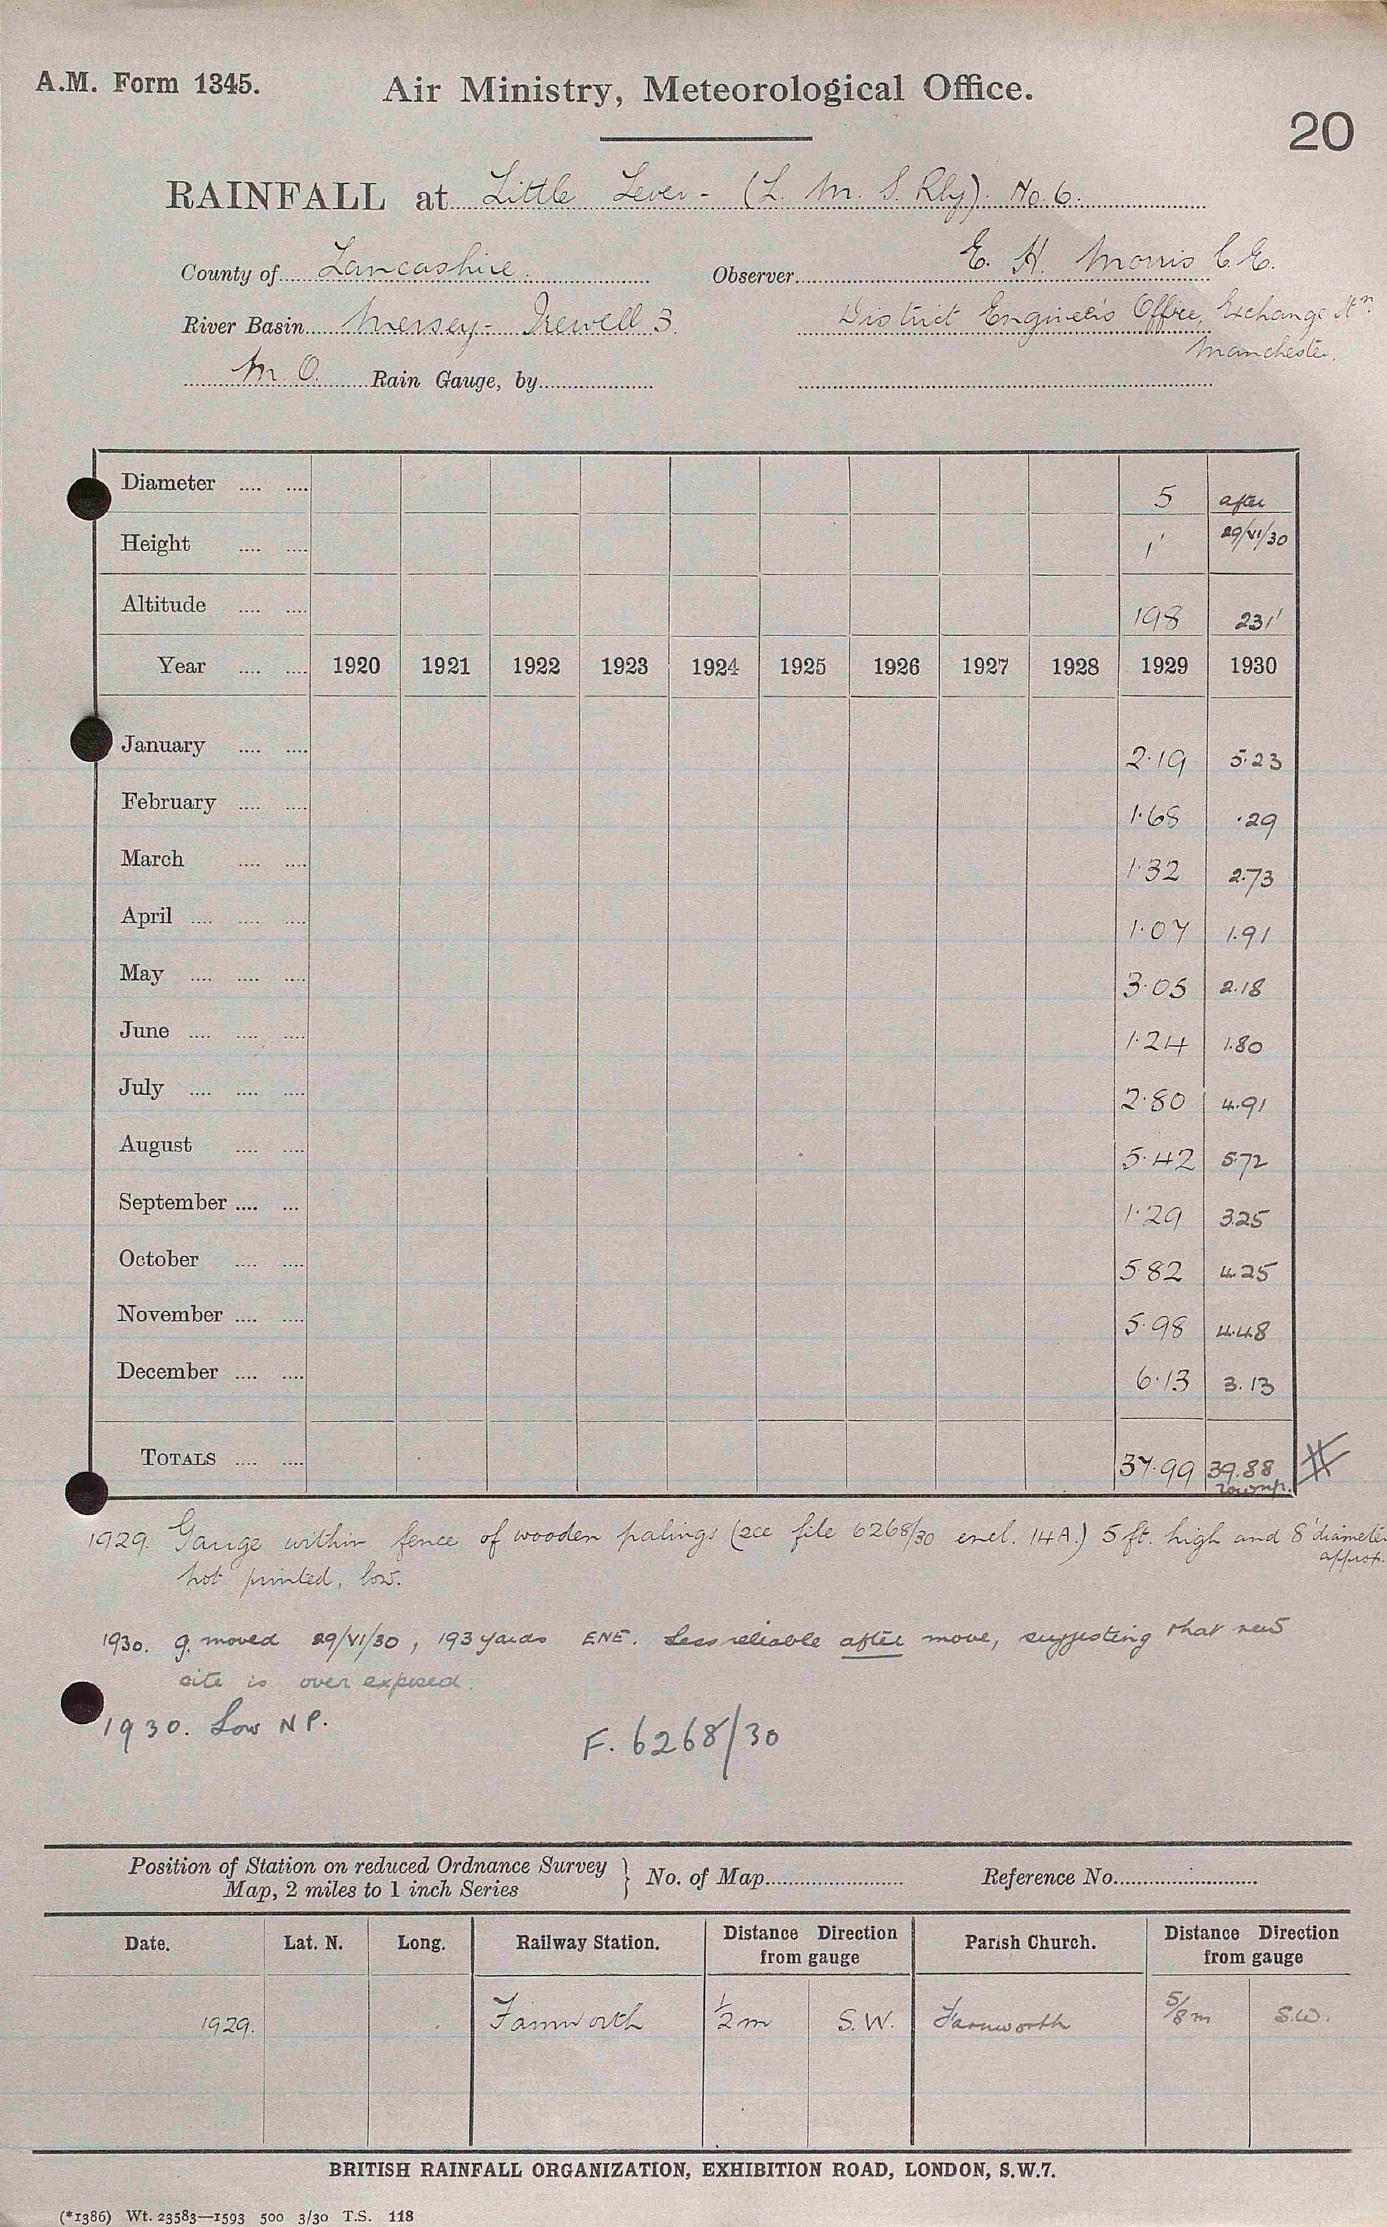 A.M. Form 1345.
Air Ministry, Meteorological Office.
20
RAINFALL at Little Lever - (L. M. S. Rly). No. 6.
County of Lancashire. Observer E. H. Morris C.E.
River Basin Mersey - Irwell 3. District Engineer's Office, Exchange Stn.
Manchester.
M O. Rain Gauge, by
Diameter 5 after
Height 1' 29/VI/30
Altitude 198 231'
Year 1920 1921 1922 1923 1924 1925 1926 1927 1928 1929 1930
January 2.19 5.23
February 1.68 .29
March 1.32 2.73
April 1.07 1.91
May 3.05 2.18
June 1.24 1.80
July 2.80 4.91
August 5.42 5.72
September 1.29 3.25
October 5.82 4.25
November 5.98 4.48
December 6.13 3.13
TOTALS 37.99 39.88 #
1929. Gauge within fence of wooden palings (see file 6268/30 encl. 14A.) 5 ft. high and 8' diameter
approx.
not printed, low.
1930. g. moved 29/VI/30, 193 yards ENE. Less reliable after move, suggesting that new
site is over exposed.
1930. Low N P.
F. 6268/30
Position of Station on reduced Ordnance Survey
Map, 2 miles to 1 inch Series } No. of Map Reference No.
Date. Lat. N. Long. Railway Station. Distance Direction from gauge Parish Church. Distance Direction from gauge
1929. Farnworth 1/2 m S.W. Farnworth 5/8 m S.W.
BRITISH RAINFALL ORGANIZATION, EXHIBITION ROAD, LONDON, S.W.7.
(*1386) Wt. 23583—1593 500 3/30 T.S. 118